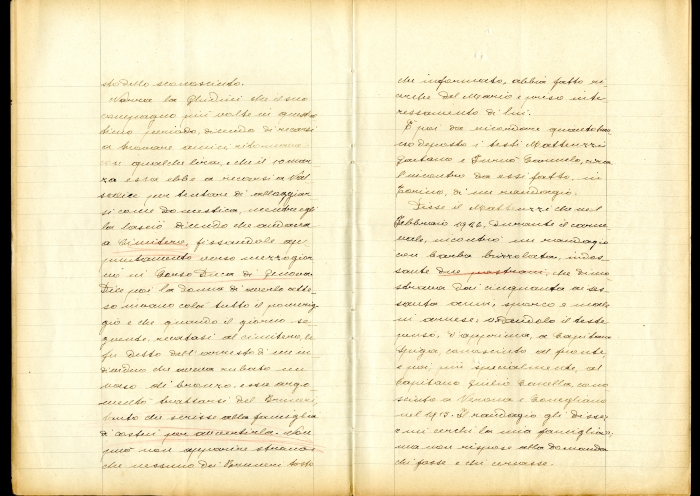 sto dello sconosciuto.
Narra la Ghidini che il suo
compagno più volte in questo
periodo, dicendo di recarsi
a trovare amici ritornava
con qualche lira, e che il 10 mar
zo essa ebbe a recarsi a Val
salice per tentare di allogiar
si come domestica, mentre egli
la lasciò dicendo che andava
a Cimitero, fissandole ap
puntamento verso mezzogior
no in Corso Duca di Genova.
Dice poi la donna di averlo atte
so invano colà tutto il pomerig
gio e che quando il giorno se
guente, recatasi al cimitero, le
fu detto dell'arresto di un in
dividuo che aveva rubato un
vaso di bronzo, essa argo
mentò trattarsi del Bruneri,
tanto che scrisse alla famiglia
di costui per avvertirla. Non
può non apparire strano
che nessuno dei Bruneri tosto
che informato, abbia fatto ri
cerche del Mario e preso inte
ressamento di lui.
È poi da ricordare quanto han
no deposto i testi Matteuzzi
Gaetano e circa
l'incontro da essi fatto, in
Torino, di un randagio.
Disse il Matteuzzi che nel
Febbraio 1926, durante il carne
vale, incontrò un randagio
con barba brizzolata, indos
sante due pastrani, che dimo
strava dai cinquanta ai ses
santa anni, sporco e male
in arnese; vedendolo il teste
pensò, d'apprima, a Capitano
conosciuto al fronte,
e poi, più specialmente, al
Capitano Giulio Canella cono
sciuto a Verona e Conegliano
nel 915. Il randagio gli disse:
"mi cerchi la mia famiglia"
ma non rispose alla domanda
chi fosse e chi cercasse.